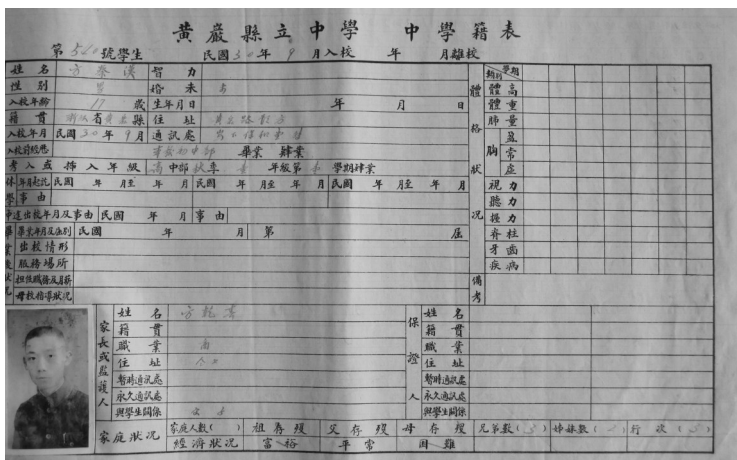 黃巖縣立中學 中學籍表
第 號學生 民國30年9月入校 年 月離校
姓名 方 漢 智力
性別 男 婚未
入校年齡 17 歲 生年月日 年 月 日
籍貫 省 縣 住址
入校年月 民國30年9月 通訊處
入校前經歷 初中部 畢業 肄業
考入或插入年級 高中部秋季 年級第 學期肄業
休學 年月起訖 民國 年 月至 年 月 民國 年 月至 年 月 民國 年 月至 年 月
事由
中途出校年月及事由 民國 年 月 事由
畢業年月及屆別 民國 年 月 第 屆
畢業後狀況
出校情形
服務場所
担任職務及月薪
母校指導狀況
體格狀況
類別 學期
體高
體重
肺量
胸
盈
常
虛
視力
聽力
握力
脊柱
牙齒
疾病
備考
家長或監護人
姓名 方
籍貫
職業 商
住址
暫時通訊處
永久通訊處
與學生關係 父子
保證人
姓名
籍貫
職業
住址
暫時通訊處
永久通訊處
與學生關係
家庭狀況 家庭人數( ) 祖存歿 父存歿 母存歿 兄弟數( ) 姊妹數( ) 行次( )
經濟狀況 富裕 平常 困難